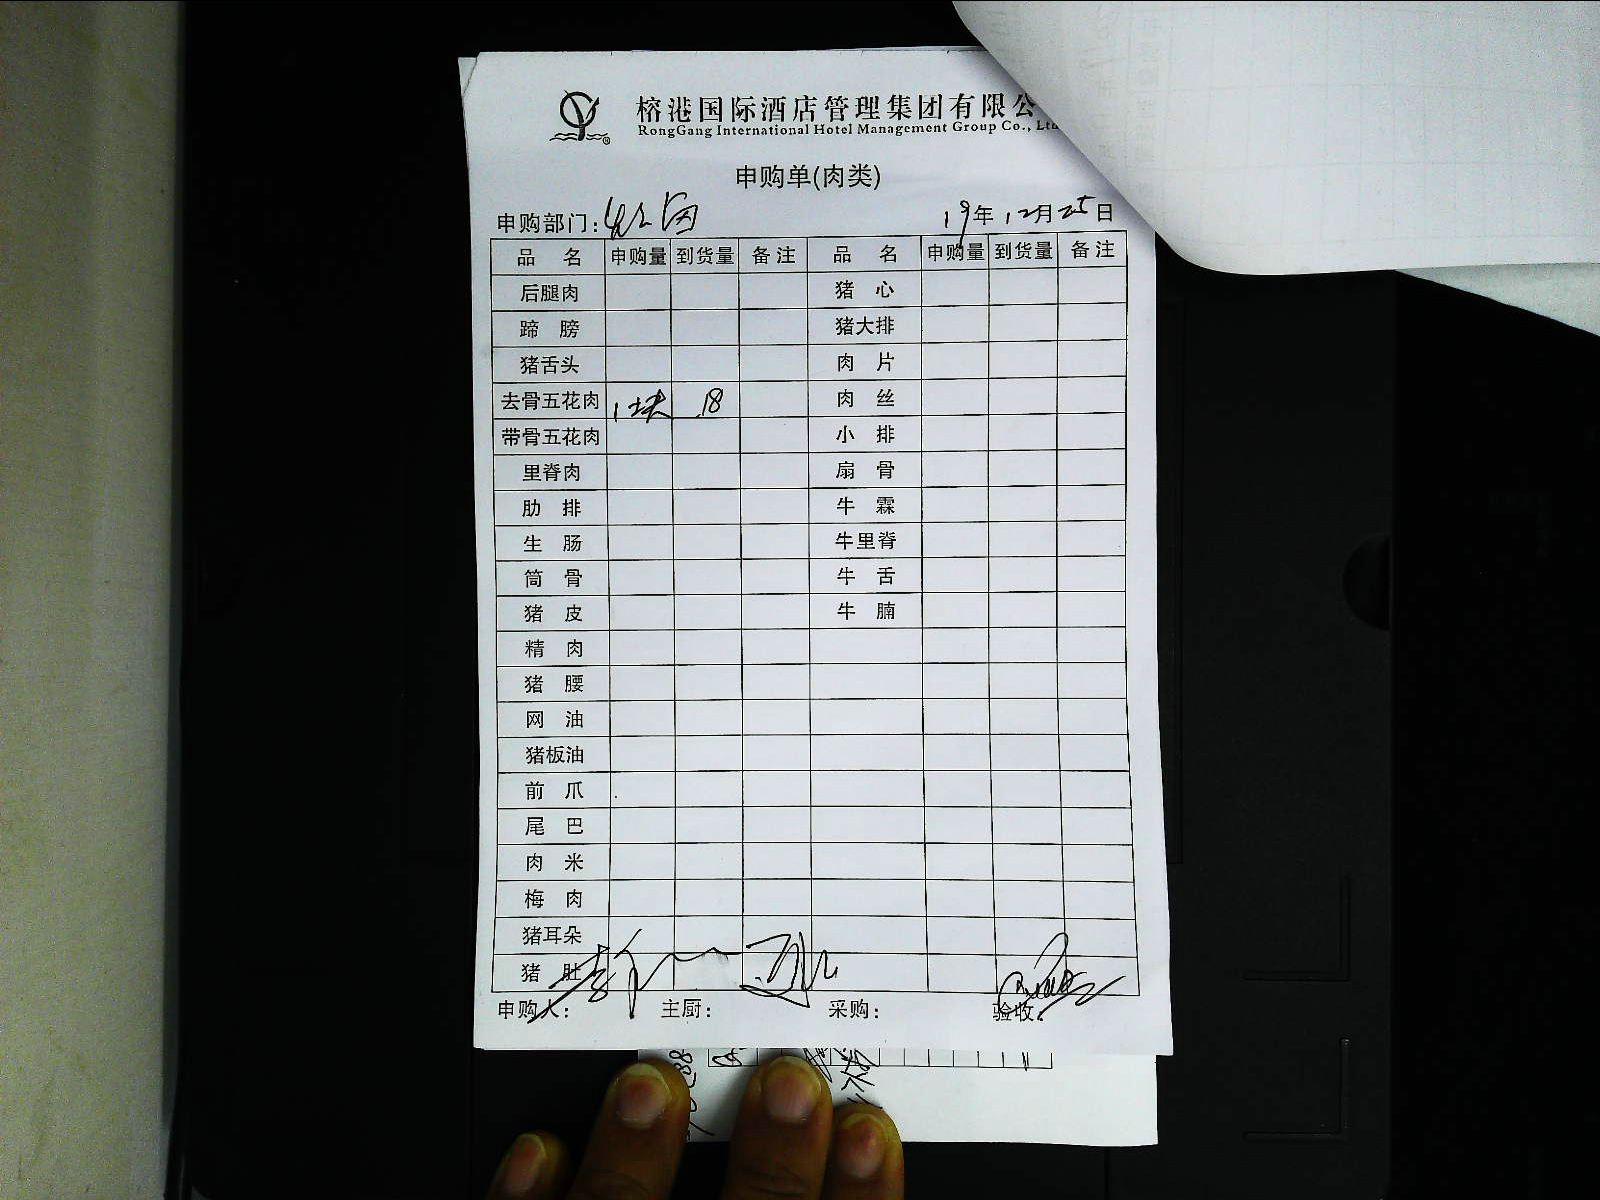 榕港国际酒店管理集团有限公
RongGang International Hotel Management Group Co., Ltd
申购单(肉类)
申购部门: 19年12月25日
品 名 申购量 到货量 备注 品 名 申购量 到货量 备注
后腿肉 猪 心
蹄 膀 猪大排
猪舌头 肉 片
去骨五花肉 1块 18 肉 丝
带骨五花肉 小 排
里脊肉 扇 骨
肋 排 牛 霖
生 肠 牛里脊
筒 骨 牛 舌
猪 皮 牛 腩
精 肉
猪 腰
网 油
猪板油
前 爪
尾 巴
肉 米
梅 肉
猪耳朵
猪 肚
申购人: 主厨: 采购: 验收: